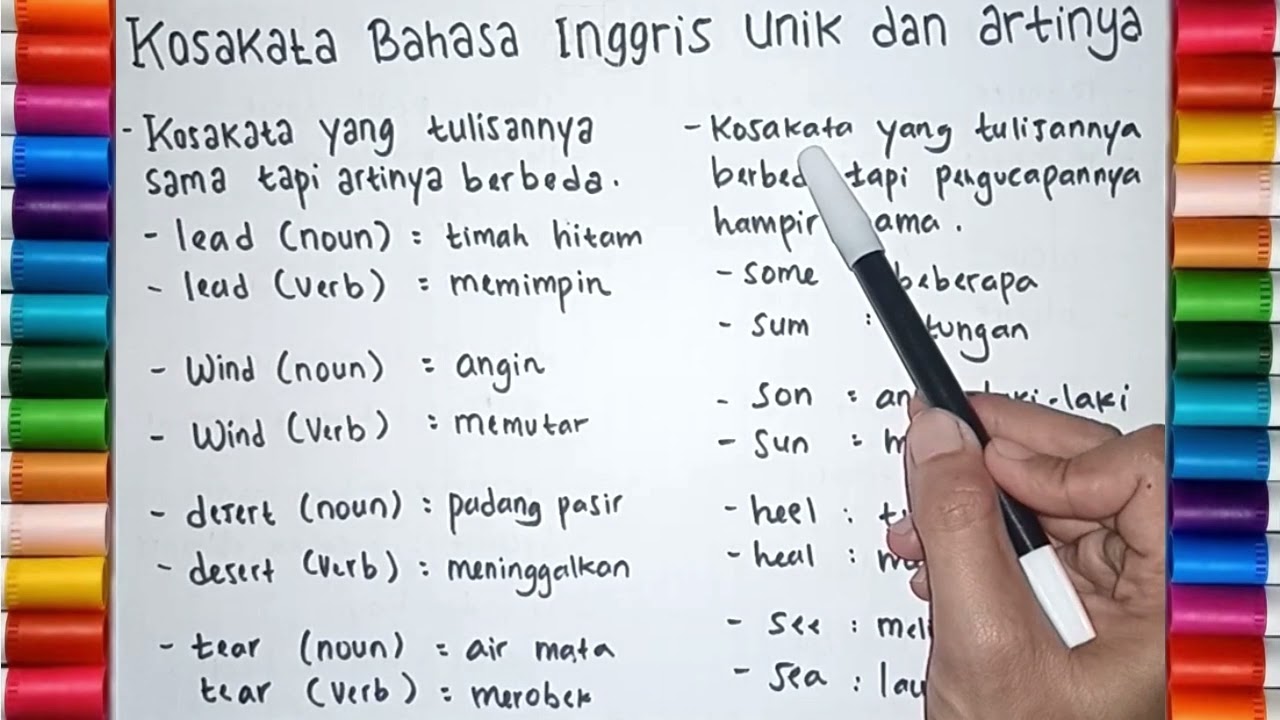 Kosakata Bahasa Inggris unik dan artinya
- Kosakata yang tulisannya
sama tapi artinya berbeda.
- lead (noun) = timah hitam
- lead (verb) : memimpin
- Wind (noun) = angin
- Wind (verb) : memutar
- desert (noun) : padang pasir
- desert (verb) : meninggalkan
- tear (noun) = air mata
tear (verb) = merobek
- Kosakata yang tulisannya
tapi pengucapannya
hampir
- some beberapa
- sum :
- son = laki
- sun =
- heel :
- heal :
- see :
- sea :